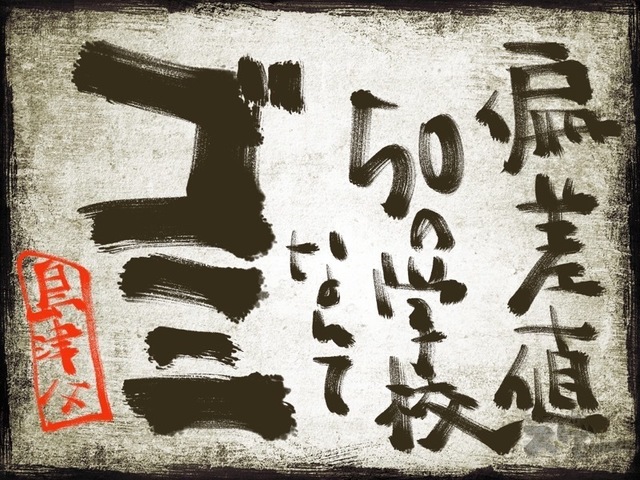 偏差値
50の学校
なんて
ゴミ
島津父